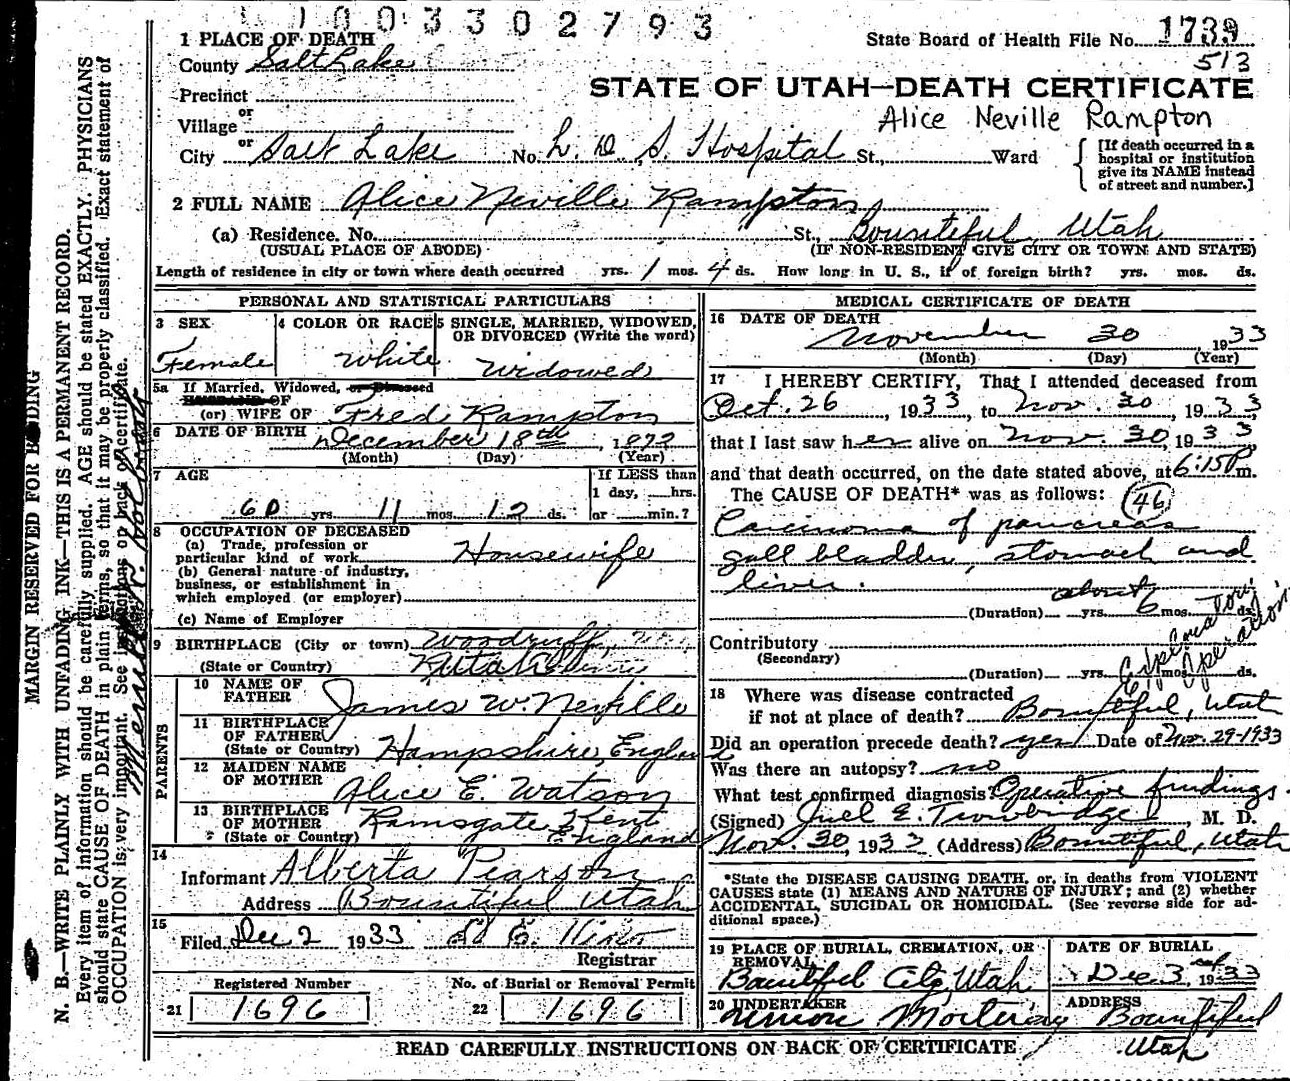 1003302793
1 PLACE OF DEATH
State Board of Health File No. 1739
County Salt Lake
513
STATE OF UTAH—DEATH CERTIFICATE
Precinct
or
Village
Alice Neville Rampton
or
City Salt Lake No. L. D. S. Hospital St., Ward
[If death occurred in a
hospital or institution
give its NAME instead
of street and number.]
2 FULL NAME Alice Neville Rampton
(a) Residence. No. St., Bountiful, Utah
(USUAL PLACE OF ABODE) (IF NON-RESIDENT GIVE CITY OR TOWN AND STATE)
Length of residence in city or town where death occurred yrs. 1 mos. 4 ds. How long in U. S., if of foreign birth? yrs. mos. ds.
PERSONAL AND STATISTICAL PARTICULARS
3 SEX
Female
4 COLOR OR RACE
White
5 SINGLE, MARRIED, WIDOWED,
OR DIVORCED (Write the word)
Widowed
5a If Married, Widowed, or Divorced
HUSBAND OF
(or) WIFE OF Fred Rampton
6 DATE OF BIRTH December 18th, 1872
(Month) (Day) (Year)
7 AGE
If LESS than
1 day, hrs.
or min.?
60 yrs 11 mos 12 ds.
8 OCCUPATION OF DECEASED
(a) Trade, profession or
particular kind of work Housewife
(b) General nature of industry,
business, or establishment in
which employed (or employer)
(c) Name of Employer
9 BIRTHPLACE (City or town) Woodruff,
(State or Country) Utah
PARENTS
10 NAME OF
FATHER James W. Neville
11 BIRTHPLACE
OF FATHER
(State or Country) Hampshire, England
12 MAIDEN NAME
OF MOTHER Alice E. Watson
13 BIRTHPLACE
OF MOTHER
(State or Country) Ramsgate, Kent
England
14
Informant Alberta Pearson
Address Bountiful Utah
15
Filed Dec 2 1933
Registrar
Registered Number
21 1696
No. of Burial or Removal Permit
22 1696
MEDICAL CERTIFICATE OF DEATH
16 DATE OF DEATH
November 30, 1933
(Month) (Day) (Year)
17 I HEREBY CERTIFY, That I attended deceased from
Oct. 26, 1933, to Nov. 30, 1933
that I last saw her alive on Nov. 30, 1933
and that death occurred, on the date stated above, at 6:15 P m.
The CAUSE OF DEATH* was as follows: 46
Carcinoma of pancreas
gall bladder, stomach and
liver.
about
(Duration) yrs. 6 mos. ds.
Contributory
(Secondary)
Exploratory
Operation
(Duration) yrs. mos. ds.
18 Where was disease contracted
if not at place of death? Bountiful, Utah
Did an operation precede death? yes Date of Nov. 29-1933
Was there an autopsy? no
What test confirmed diagnosis? Operative findings.
(Signed) Juel E. Trowbridge, M. D.
Nov. 30, 1933 (Address) Bountiful, Utah
*State the DISEASE CAUSING DEATH, or, in deaths from VIOLENT
CAUSES state (1) MEANS AND NATURE OF INJURY; and (2) whether
ACCIDENTAL, SUICIDAL OR HOMICIDAL. (See reverse side for ad-
ditional space.)
19 PLACE OF BURIAL, CREMATION, OR
REMOVAL
Bountiful City, Utah
DATE OF BURIAL
Dec 3rd 1933
20 UNDERTAKER
Union Mortuary
ADDRESS
Bountiful
Utah
READ CAREFULLY INSTRUCTIONS ON BACK OF CERTIFICATE
MARGIN RESERVED FOR BINDING
N. B.—WRITE PLAINLY WITH UNFADING INK—THIS IS A PERMANENT RECORD.
Every item of information should be carefully supplied. AGE should be stated EXACTLY. PHYSICIANS
should state CAUSE OF DEATH in plain terms, so that it may be properly classified. Exact statement of
OCCUPATION is very important. See instructions on back of certificate.